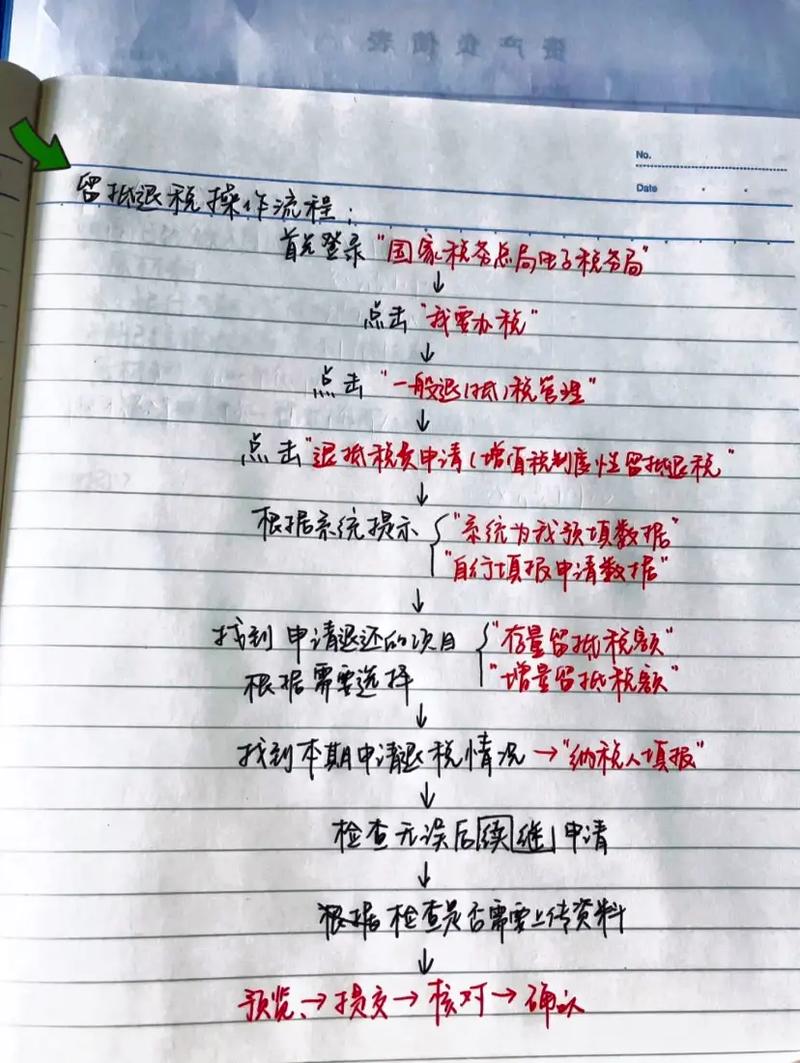 资产负债表
No.
Date
留抵退税操作流程:
首先登录"国家税务总局电子税务局"
↓
点击"我要办税"
↓
点击"一般退(抵)税管理"
↓
点击"退抵税费申请(增值税制度性留抵退税"
↓
根据系统提示{"系统为我预填数据"
"自行填报申请数据"
↓
找到申请退还的项目{"存量留抵税额"
根据需要选择 "增量留抵税额"
↓
找到本期申请退税情况→"纳税人填报"
↓
检查无误后续继申请
↓
根据检查是否需要上传资料
↓
预览→提交→核对→确认